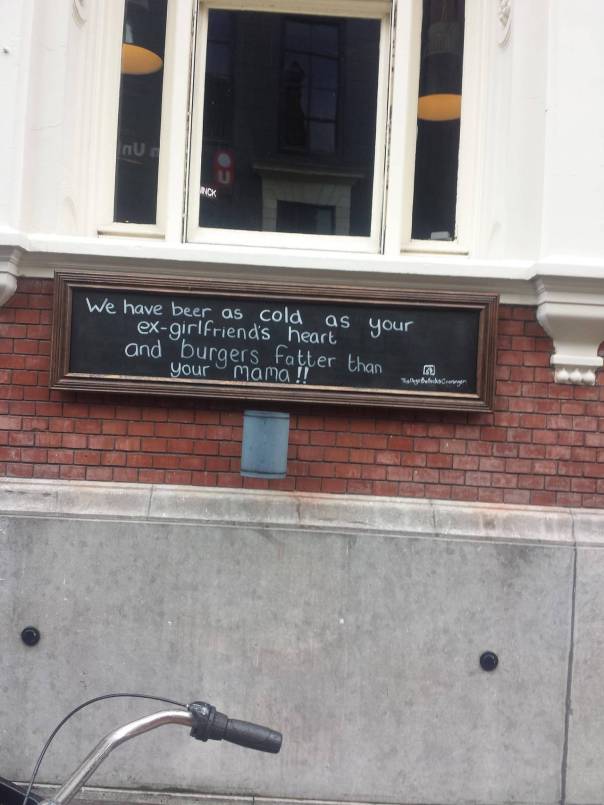 We have beer as cold as your
ex-girlfriend's heart
and burgers fatter than
your mama!!
INCK